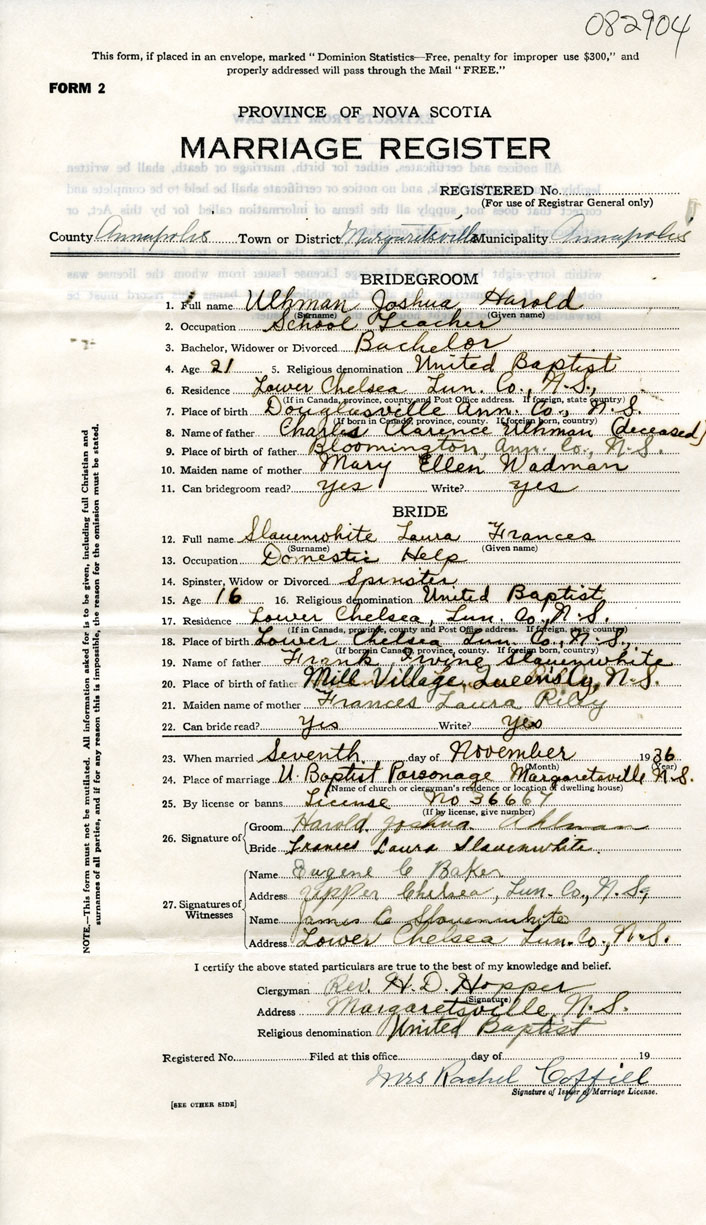 082904
This form, if placed in an envelope, marked "Dominion Statistics—Free, penalty for improper use $300," and
properly addressed will pass through the Mail "FREE."
FORM 2
PROVINCE OF NOVA SCOTIA
MARRIAGE REGISTER
REGISTERED No.
(For use of Registrar General only)
County Annapolis Town or District Margaretsville Municipality Annapolis
BRIDEGROOM
1. Full name Uhlman Joshua Harold
(Surname) (Given name)
2. Occupation School Teacher
3. Bachelor, Widower or Divorced Bachelor
4. Age 21 5. Religious denomination United Baptist
6. Residence Lower Chelsea Lun. Co., N.S.,
(If in Canada, province, county and Post Office address. If foreign, state country)
7. Place of birth Douglasville Ann. Co., N.S.
(If born in Canada, province, county. If foreign born, country)
8. Name of father Charles Clarence Uhlman (deceased)
9. Place of birth of father Bloomington, Ann. Co., N.S.
10. Maiden name of mother Mary Ellen Wadman
11. Can bridegroom read? yes Write? yes
BRIDE
12. Full name Slauenwhite Laura Frances
(Surname) (Given name)
13. Occupation Domestic Help
14. Spinster, Widow or Divorced Spinster
15. Age 16 16. Religious denomination United Baptist
17. Residence Lower Chelsea, Lun. Co., N.S.
(If in Canada, province, county and Post Office address. If foreign, state country)
18. Place of birth Lower Chelsea Lun. Co., N.S.,
(If born in Canada, province, county. If foreign born, country)
19. Name of father Frank Irvine Slauenwhite
20. Place of birth of father Mill Village, N.S.
21. Maiden name of mother Frances Laura Riley
22. Can bride read? Yes Write? Yes
23. When married Seventh day of November 1936
(Month) (Year)
24. Place of marriage U. Baptist Parsonage Margaretsville N.S.
(Name of church or clergyman's residence or location of dwelling house)
25. By license or banns License No 36667
(If by license, give number)
26. Signature of
Groom Harold Joshua Uhlman
Bride Frances Laura Slauenwhite
27. Signatures of Witnesses
Name Eugene C Baker
Address Upper Chelsea, Lun. Co., N.S.,
Name James A Slauenwhite
Address Lower Chelsea Lun. Co., N.S.
I certify the above stated particulars are true to the best of my knowledge and belief.
Clergyman Rev. H. D. Hopper
(Signature)
Address Margaretsville, N.S.
Religious denomination United Baptist
Registered No. Filed at this office day of 19
Mrs Rachel Coffill
Signature of Issuer of Marriage License.
[SEE OTHER SIDE]
NOTE.—This form must not be mutilated. All information asked for is to be given, including full Christian and
surnames of all parties, and if for any reason this is impossible, the reason for the omission must be stated.